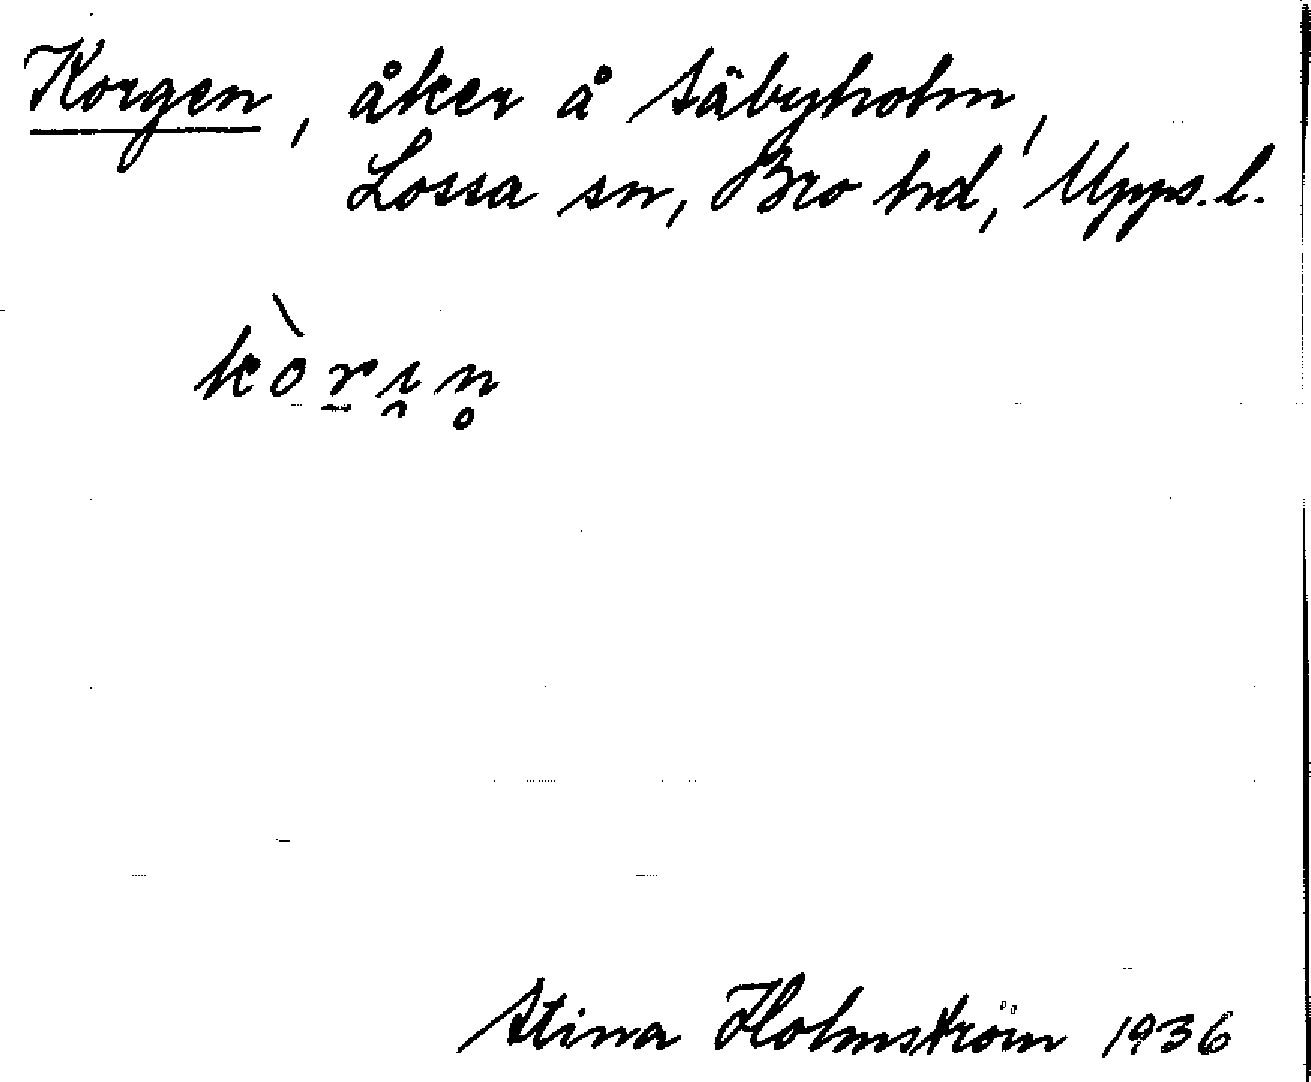 Korgen, åker å Säbyholm,
Lossa sn, Bro hd, Upps. l.
kòri̯n̥
Stina Holmström 1936